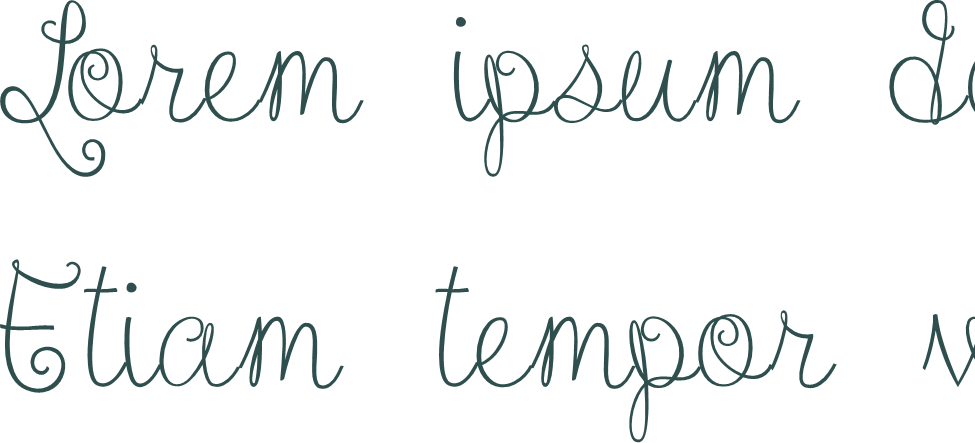 Lorem ipsum
Etiam tempor